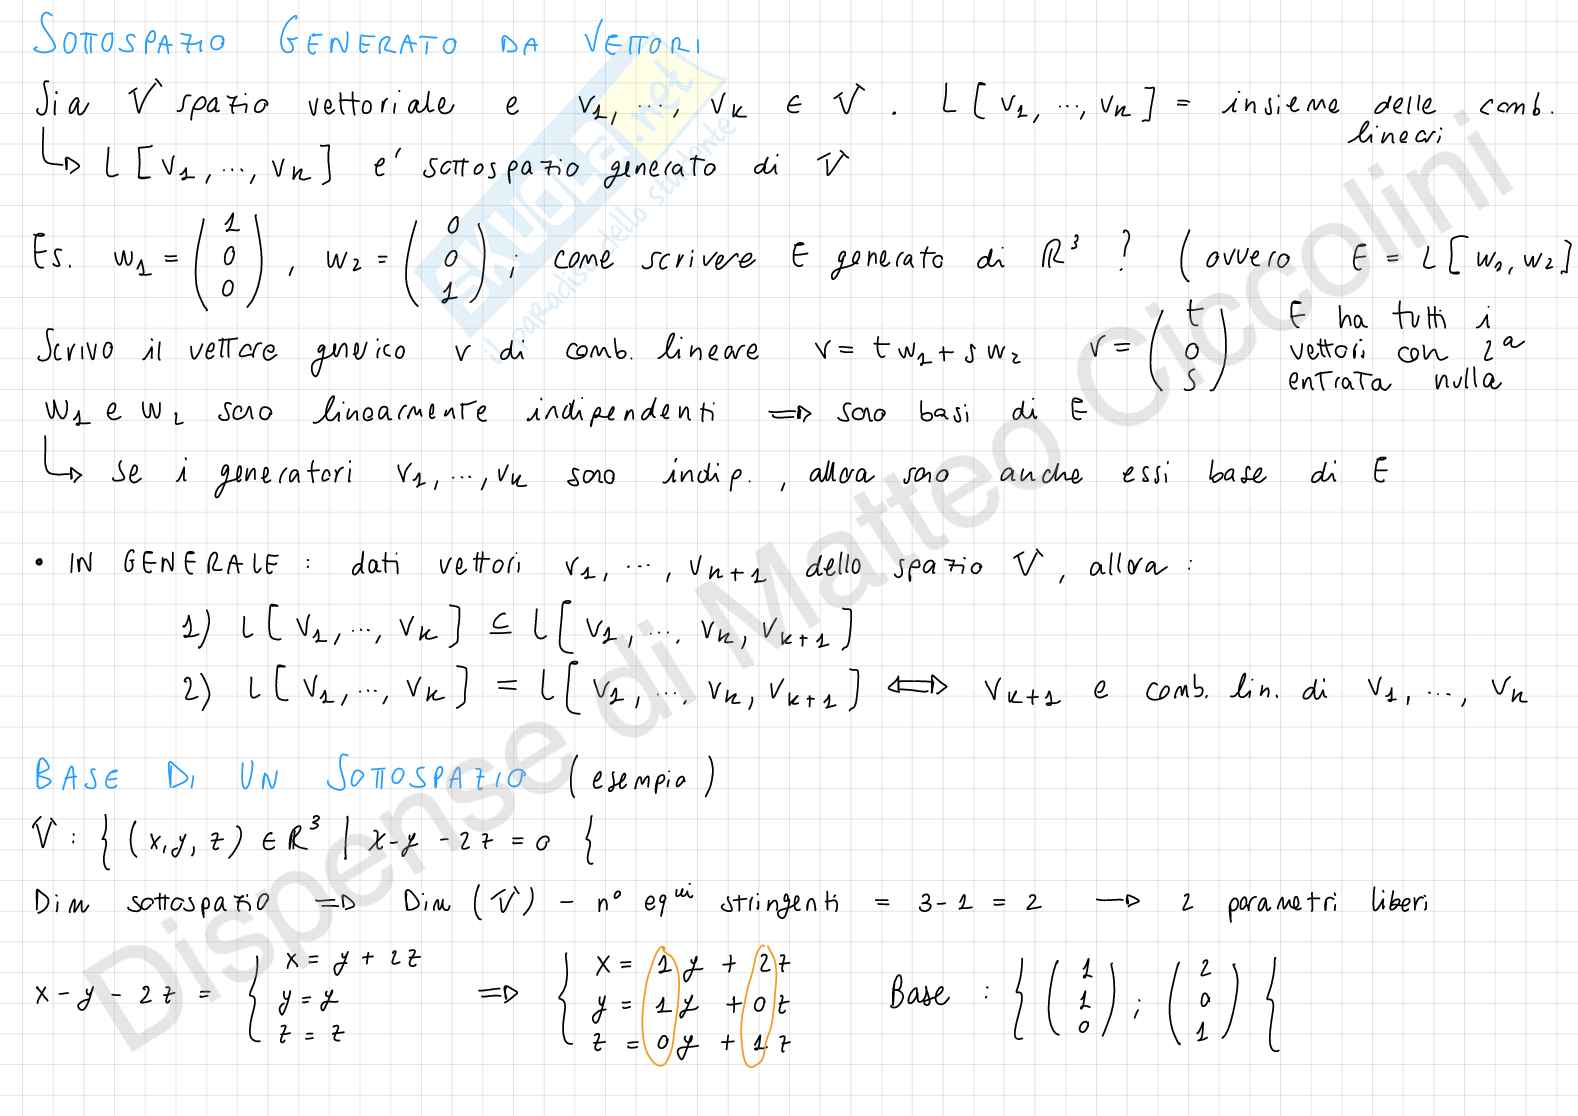 SOTTOSPAZIO GENERATO DA VETTORI
Sia V spazio vettoriale e v1, ..., vk ∈ V . L[v1, ..., vk] = insieme delle comb. lineari
↳ L[v1, ..., vk] e' sottospazio generato di V
Es. w1 = (1 0 0), w2 = (0 0 1); come scrivere E generato di R³ ? (ovvero E = L[w1, w2]
Scrivo il vettore generico v di comb. lineare v = t w1 + s w2 v = (t 0 s) E ha tutti i vettori con 2ª entrata nulla
w1 e w2 sono linearmente indipendenti ⇒ sono basi di E
↳ se i generatori v1, ..., vk sono indip., allora sono anche essi base di E
• IN GENERALE : dati vettori v1, ..., vk+1 dello spazio V, allora :
1) L[v1, ..., vk] ⊆ L[v1, ..., vk, vk+1]
2) L[v1, ..., vk] = L[v1, ..., vk, vk+1] ⇔ vk+1 e comb. lin. di v1, ..., vk
BASE DI UN SOTTOSPAZIO (esempio)
V : { (x, y, z) ∈ R³ | x - y - 2z = 0 {
Dim sottospazio ⇒ Dim (V) - n° equi stringenti = 3-1 = 2 → 2 parametri liberi
x - y - 2z = { x = y + 2z
y = y
z = z
⇒ { x = 1y + 2z
y = 1y + 0z
z = 0y + 1z
Base : { (1 1 0) ; (2 0 1) {
Dispense di Matteo Ciccolini
SKUOLA.net
il paradiso dello studente